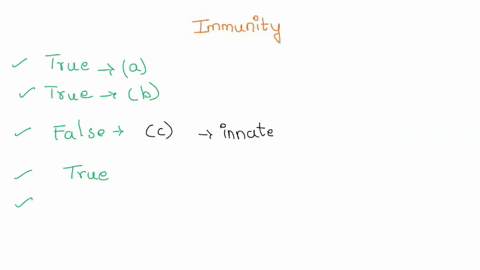 Immunity
✓ True → (a)
✓ True → (b)
✓ False → (c) → innate
✓ True
✓